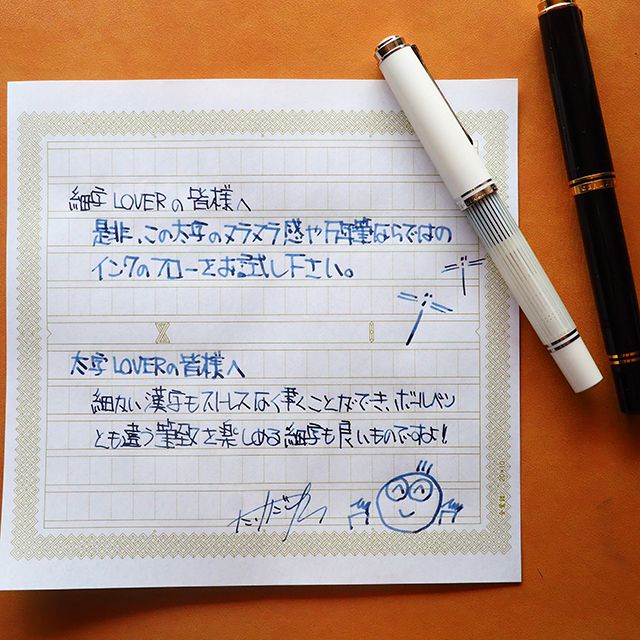 細字LOVERの皆様へ
是非、この太字のヌラヌラ感や万年筆ならではの
インクのフローをお試し下さい。
太字LOVERの皆様へ
細かい漢字もストレスなく書くことができ、ボールペン
とも違う筆致を楽しめる細字も良いものですよ!